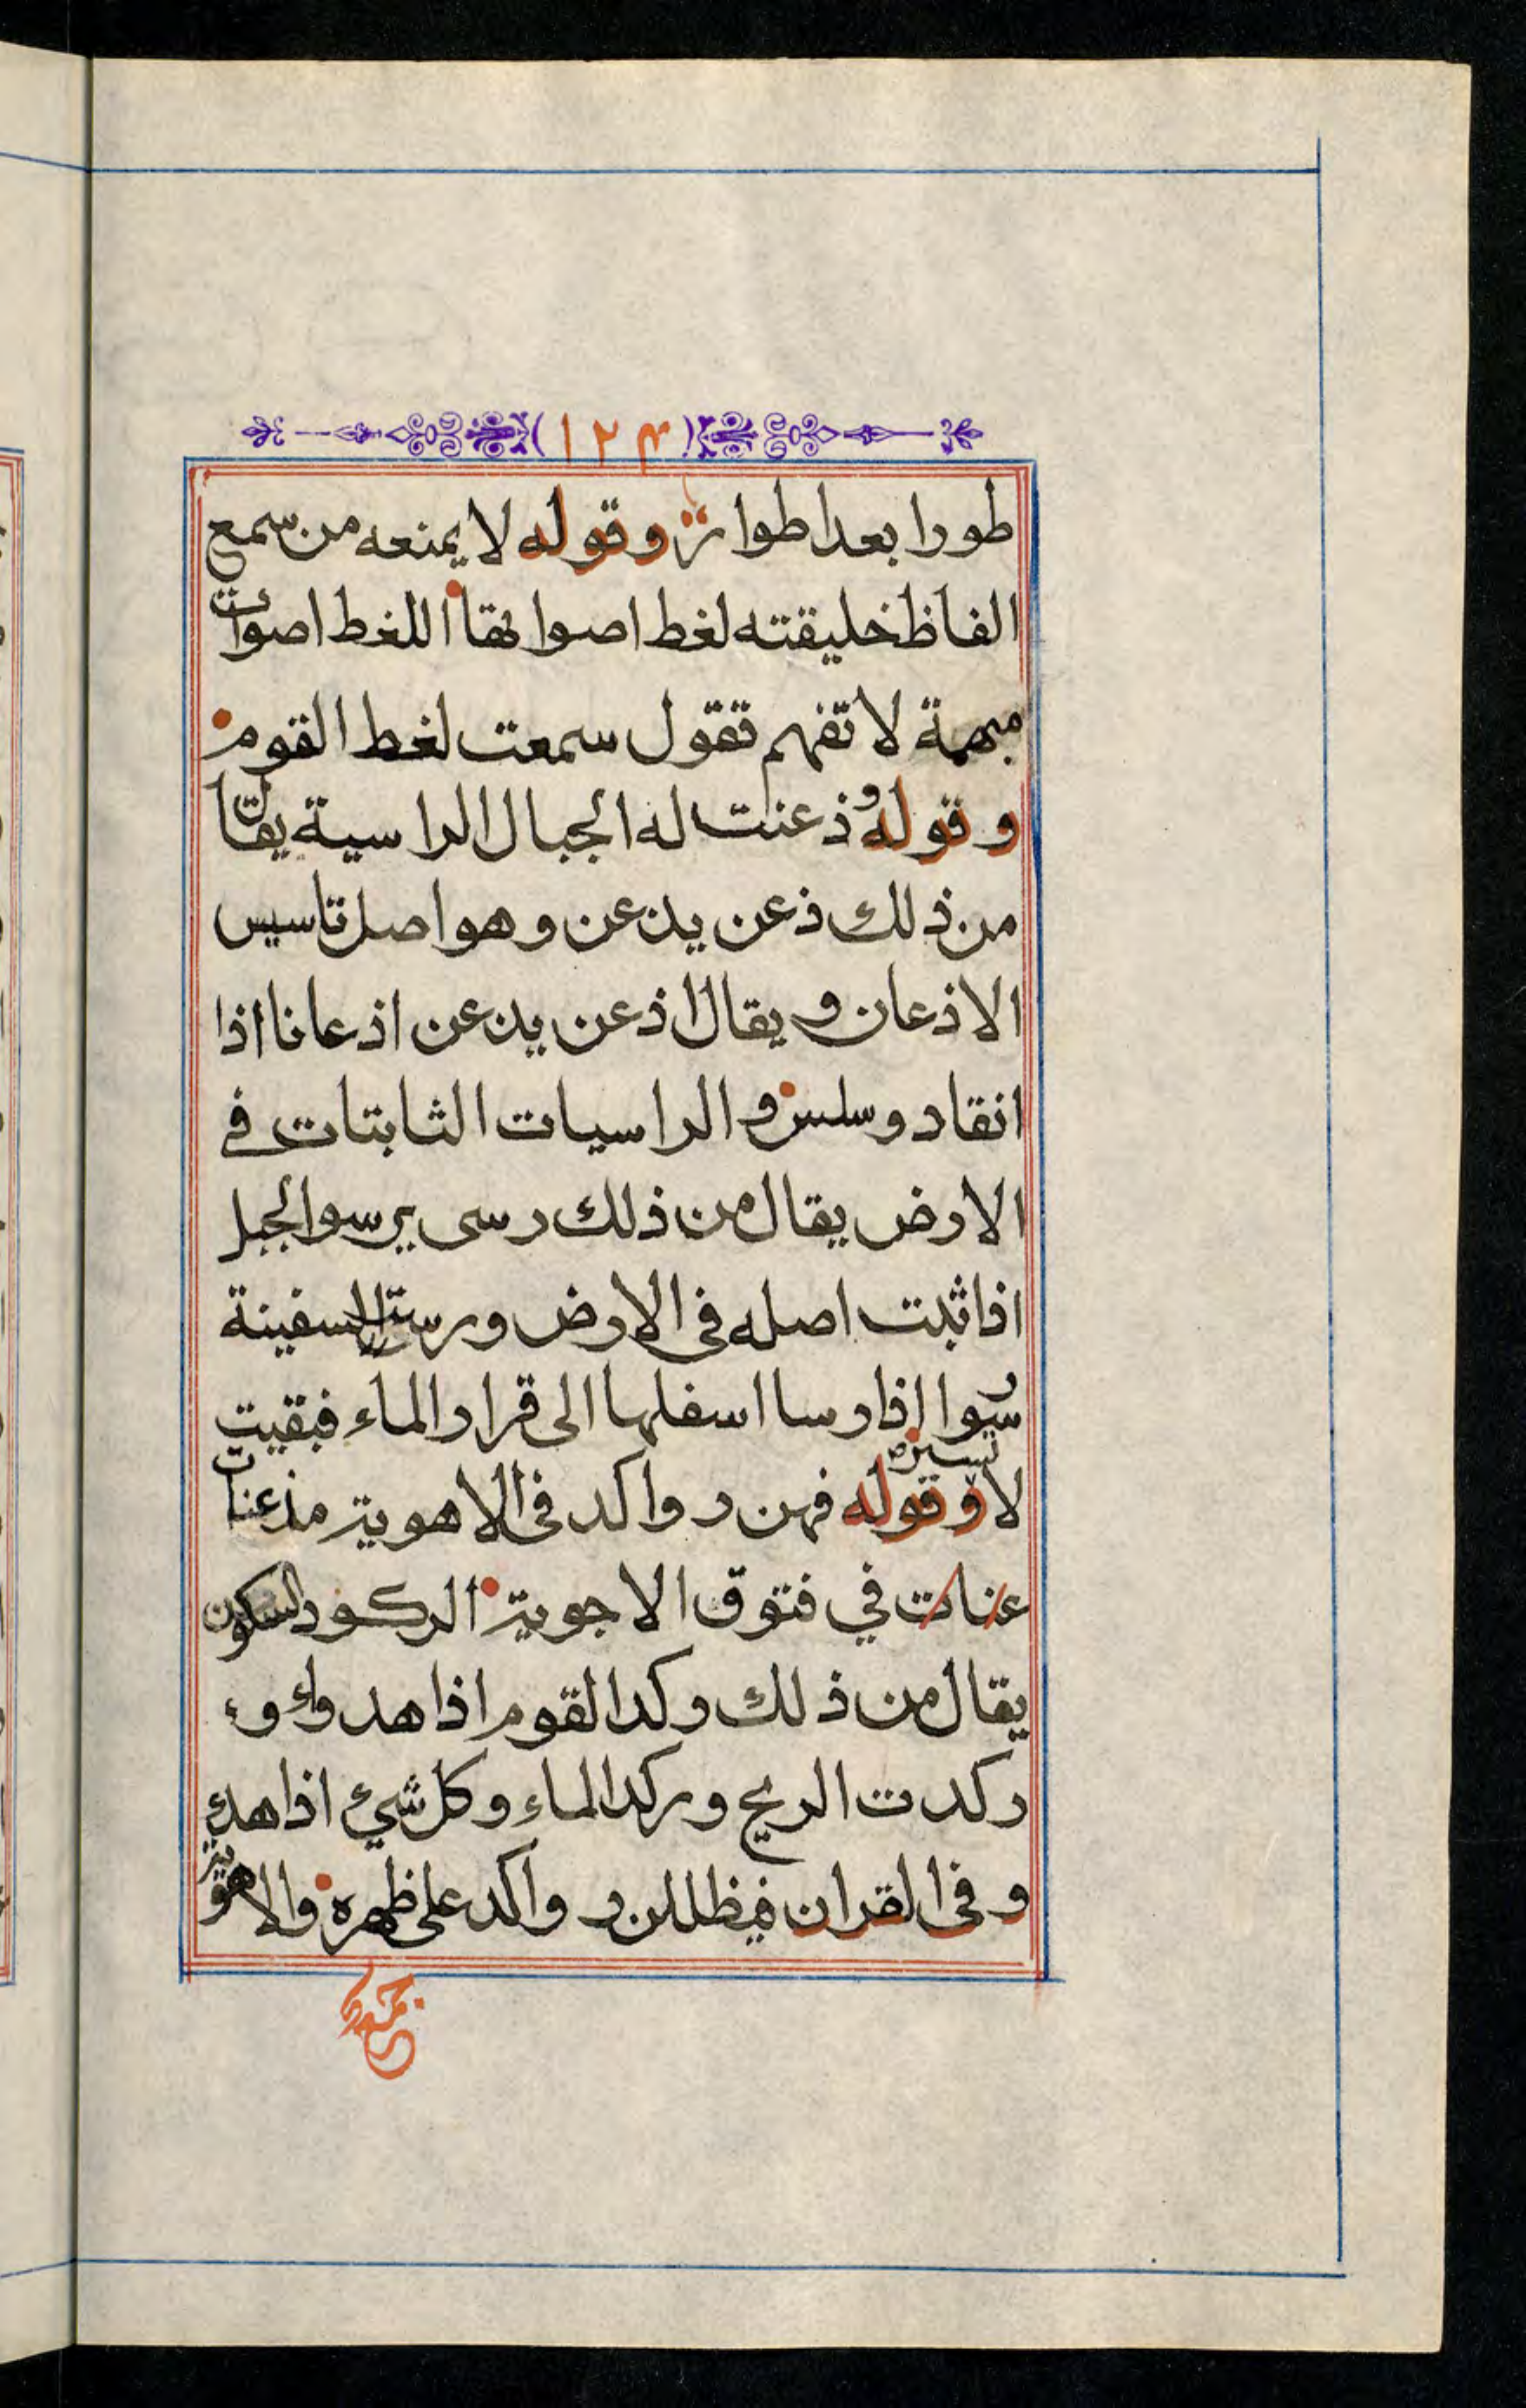 (١٢٤)
طورا بعد اطوار وقوله لا يمنعه من سمع
الفاظ خليقته لغط اصواتها اللغط اصوات
مبهمة لا تفهم تقول سمعت لغط القوم
وقوله وذعنت له الجبال الراسية يقال
من ذلك ذعن يذعن وهو اصل تاسيس
الاذعان و يقال اذعن يذعن اذعانا اذا
انقاد وسلس والراسيات الثابتات في
الارض يقال من ذلك رسى يرسو الجبل
اذا ثبت اصله في الارض ورست السفينة
رسوا اذا رسا اسفلها الى قرار الماء فبقيت
لا تسير وقوله فهن رواكد في الاهوية مذعنات
عنات في فتوق الاجوية الركود السكون
يقال من ذلك ركد القوم اذا هدوا و
ركدت الريح وركد الماء وكل شيء اذا هدء
وفي القران فيظللن رواكد على ظهره والاهوية